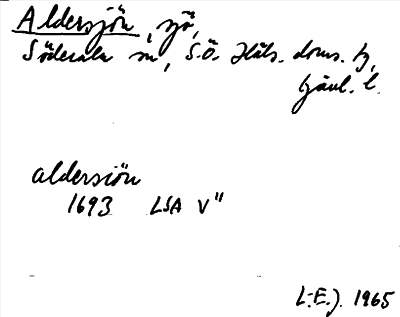 Aldersjön, sjö,
Söderala sn, S.Ö. Häls. doms. tg,
Gävl. l.
aldersiön
1693 LSA V"
L-E.J. 1965